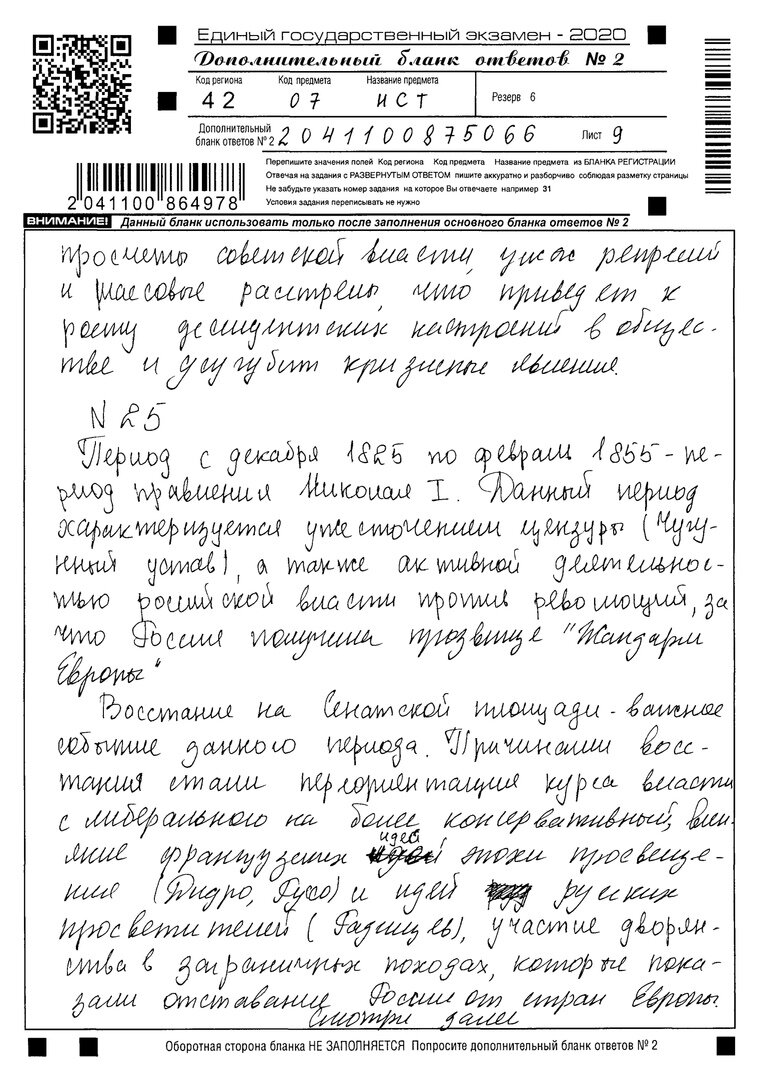 Единый государственный экзамен - 2020
Дополнительный бланк ответов № 2
Код региона Код предмета Название предмета
42 07 ИСТ Резерв 6
Дополнительный бланк ответов № 2 2041100875066 Лист 9
Перепишите значения полей Код региона Код предмета Название предмета из БЛАНКА РЕГИСТРАЦИИ
Отвечая на задания с РАЗВЕРНУТЫМ ОТВЕТОМ пишите аккуратно и разборчиво соблюдая разметку страницы
Не забудьте указать номер задания на которое Вы отвечаете например 31
Условия задания переписывать не нужно
2 041100 864978
ВНИМАНИЕ! Данный бланк использовать только после заполнения основного бланка ответов № 2
просчеты советской власти, ужас репрессий
и массовые расстрелы, что приведет к
росту диссидентских настроений в общес-
тве и усугубит кризисные явления.
N 25
Период с декабря 1825 по февраль 1855 - пе-
риод правления Николая I. Данный период
характеризуется ужесточением цензуры (Чугу-
нный устав), а также активной деятельнос-
тью российской власти против революций, за
что Россия получила прозвище "Жандарм
Европы"
Восстание на Сенатской площади - важное
событие данного периода. Причинами восс-
тания стали переориентация курса власти
с либерального на более консервативный, вли-
яние французских идей эпохи просвеще-
ния (Дидро, Руссо) и идей русских
просветителей (Радищев), участие дворян-
ства в заграничных походах, которые пока-
зали отставание России от стран Европы.
Смотри далее
Оборотная сторона бланка НЕ ЗАПОЛНЯЕТСЯ Попросите дополнительный бланк ответов № 2